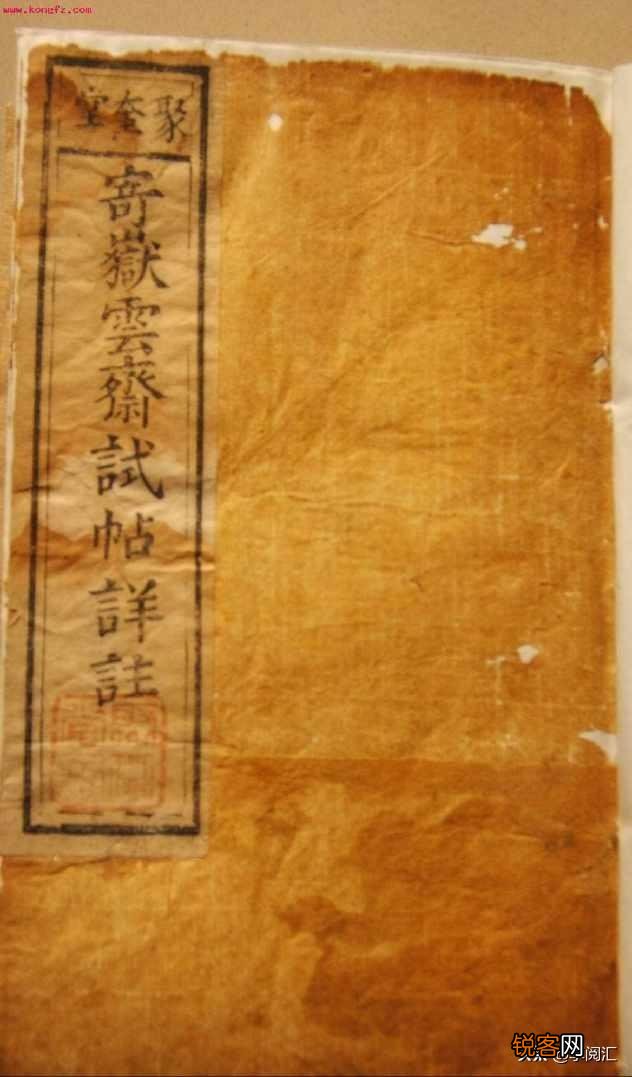 www.kongfz.com
聚奎堂
寄嶽雲齋試帖詳註
锐客网